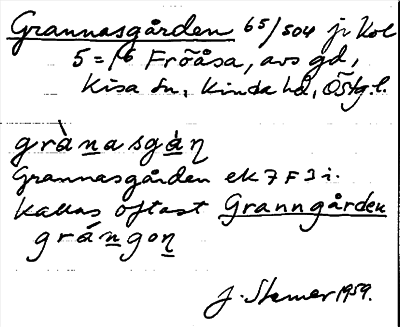 Grannasgården 65/504 jr Kol
5 = 1/6 Fröåsa, avs gd,
Kisa sn, Kinda hd, Östg. l.
gràn̲asgạ̀n̲
Grannasgården ek 7 F 3 i.
kallas oftast Granngården
grán̲gon̲
J. Stemer 1959.